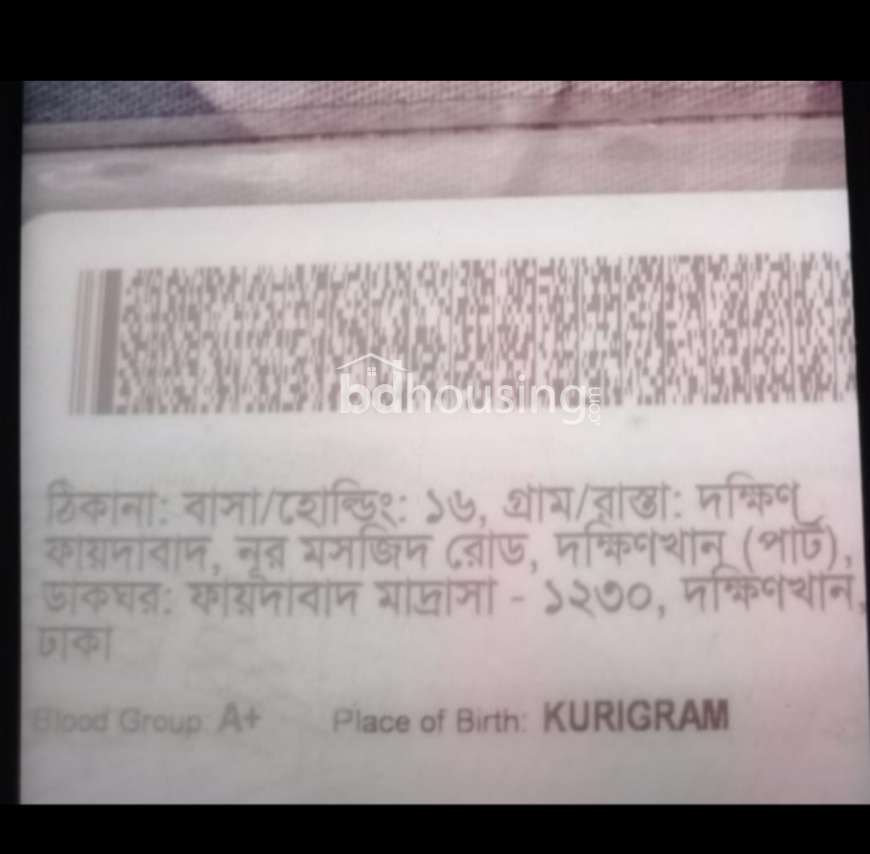 bdhousing.com
ঠিকানা: বাসা/হোল্ডিং: ১৬, গ্রাম/রাস্তা: দক্ষিণ
ফায়দাবাদ, নূর মসজিদ রোড, দক্ষিণখান (পার্ট),
ডাকঘর: ফায়দাবাদ মাদ্রাসা - ১২৩০, দক্ষিণখান,
ঢাকা
Blood Group: A+ Place of Birth: KURIGRAM